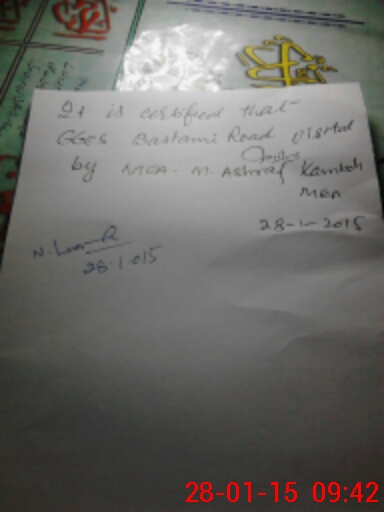 It is certified that
GGES Bastami Road visited
by MEA - M. Ashraf Kamboh
MEA
28-1-2015
28-1-015
28-01-15 09:42